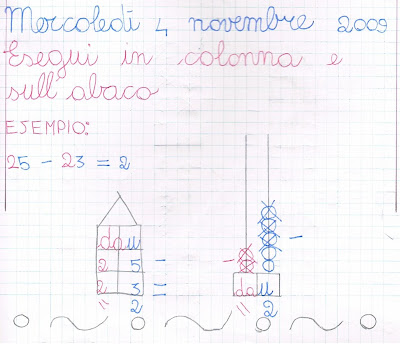 Mercoledì 4 novembre 2009
Esegui in colonna e
sull'abaco
ESEMPIO:
25 - 23 = 2
da u
2 5 -
2 3 =
" 2
-
-
da u
" 2